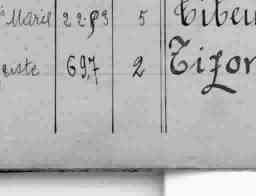 Marie 22.93 5 Tibeu
iste 697 2 Tizon